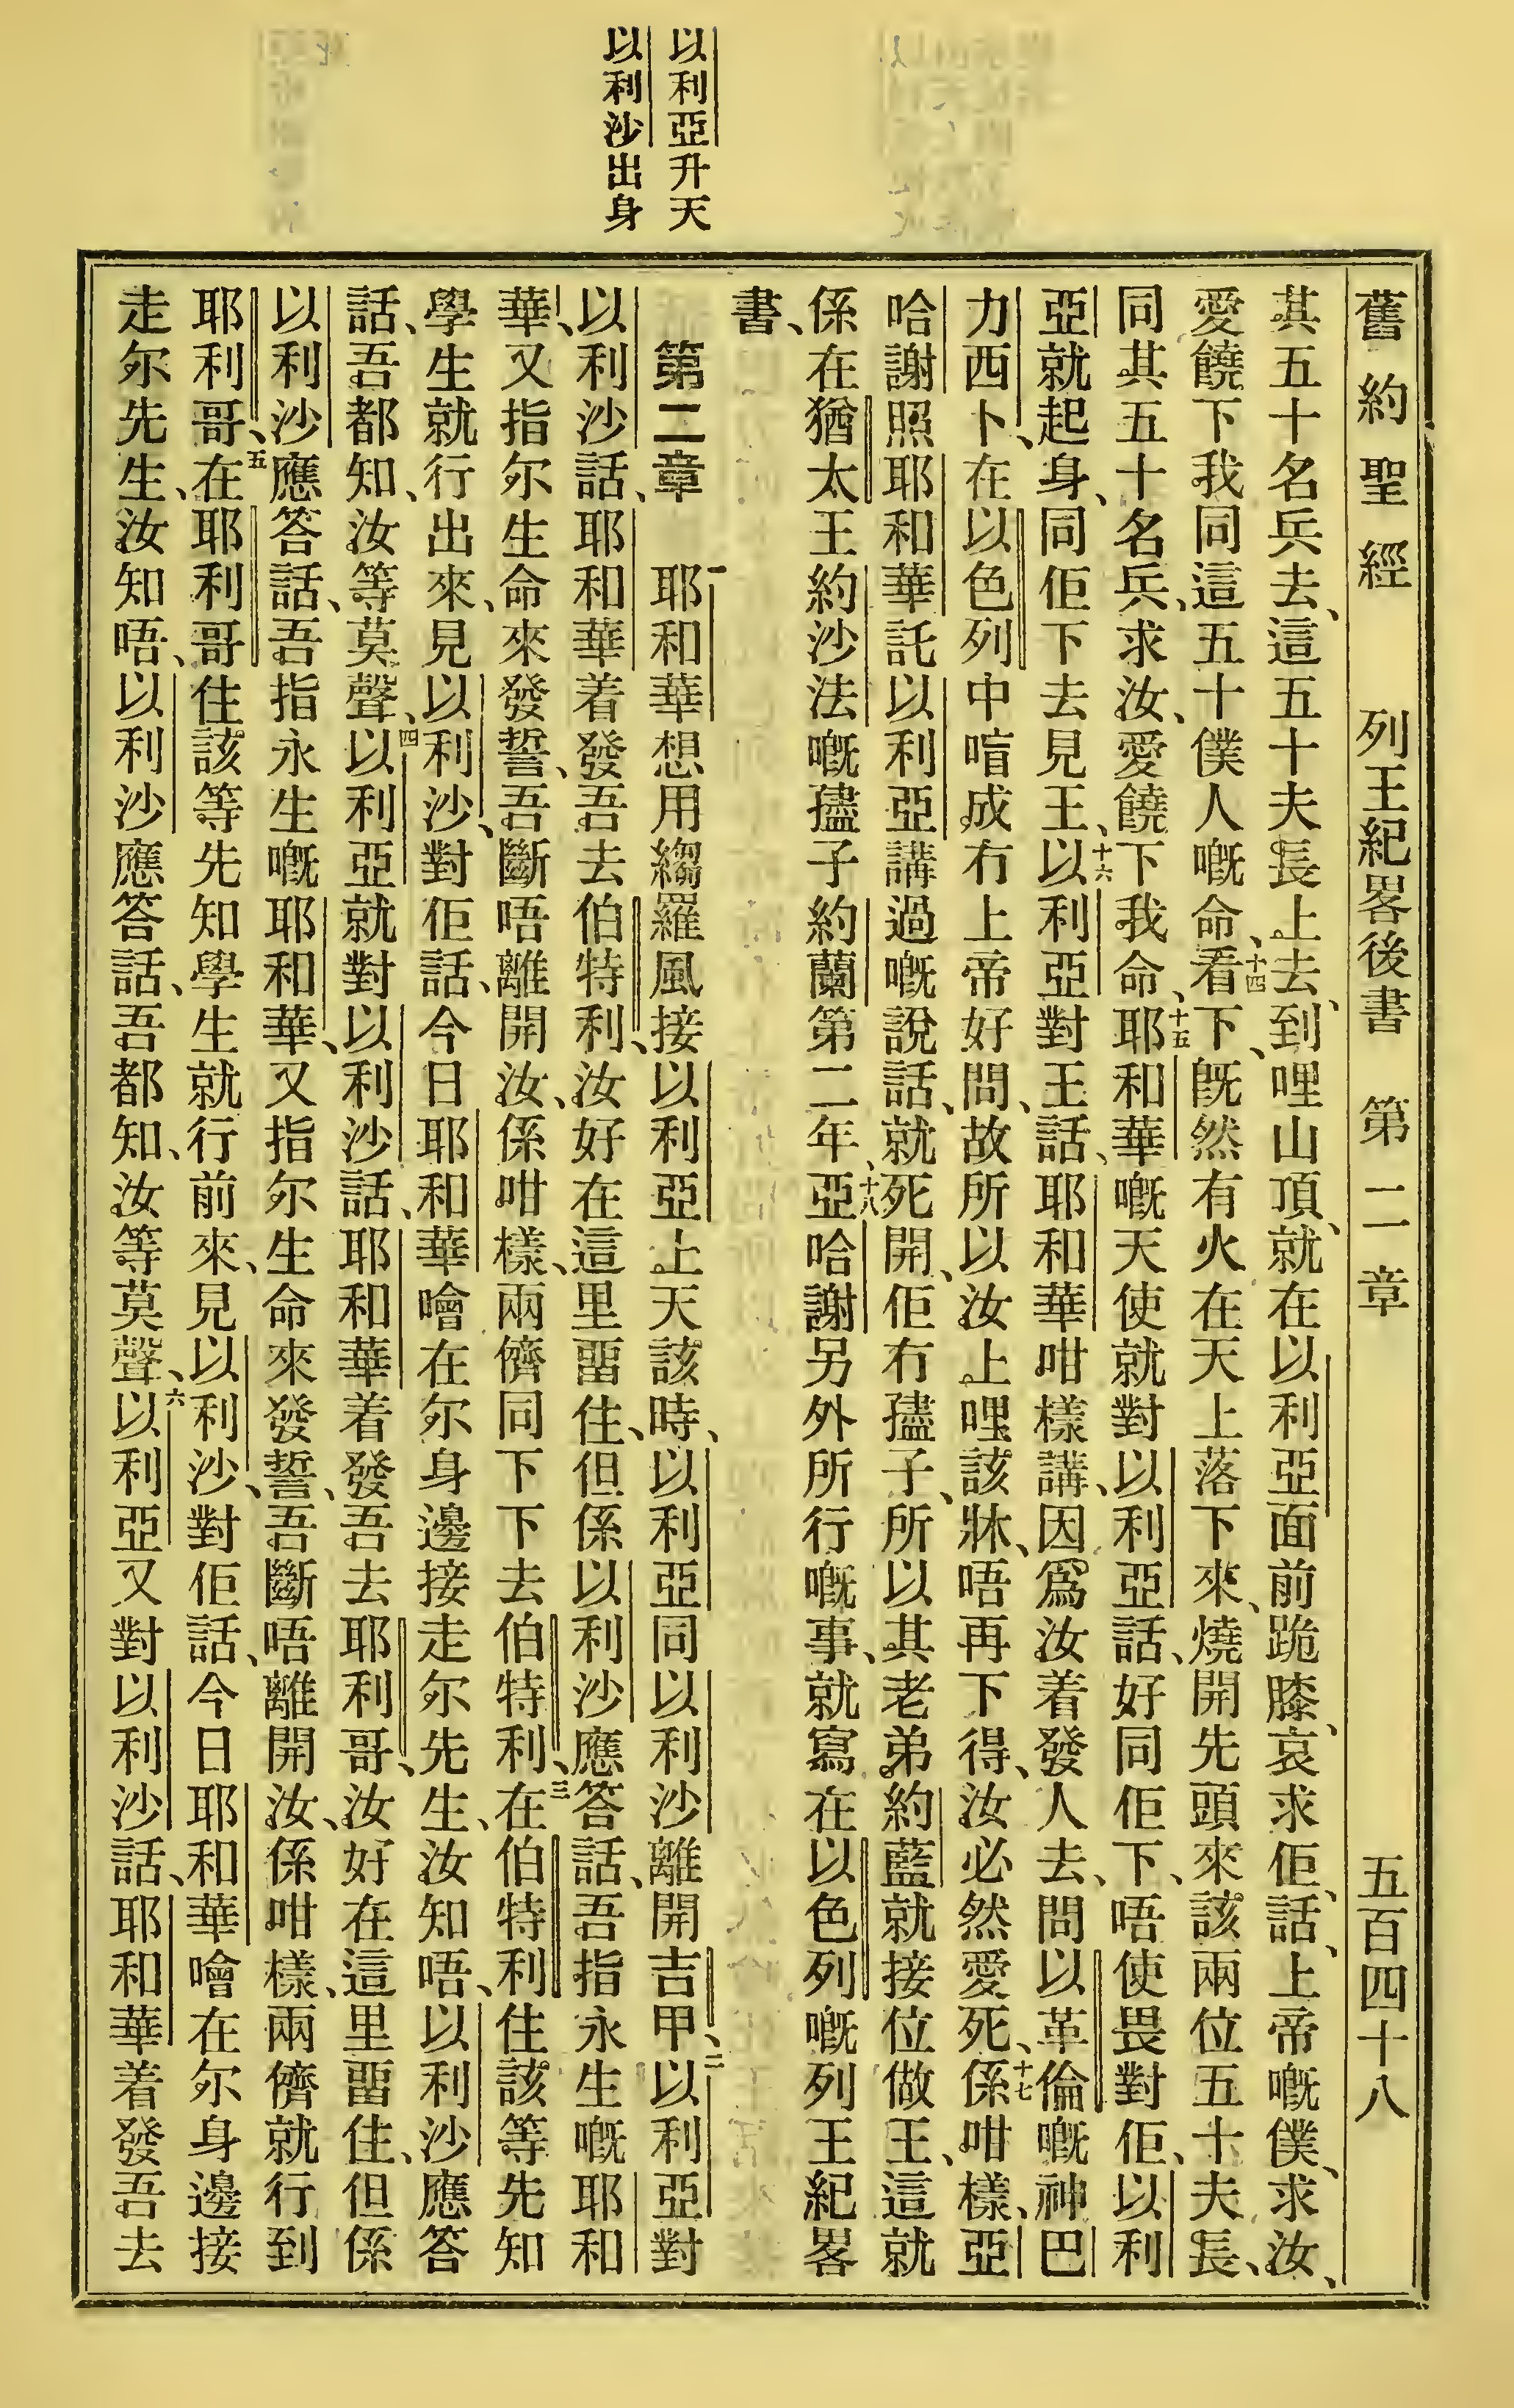 以利亞升天
以利沙出身
舊約聖經 列王紀畧後書 第二章 五百四十八
其五十名兵去、這五十夫長上去、到哩山頂、就在以利亞面前跪膝、哀求佢、話、上帝嘅僕、求汝、
愛饒下我同這五十僕人嘅命、十四看下、既然有火在天上落下來、燒開先頭來該兩位五十夫長、
同其五十名兵、求汝、愛饒下我命、十五耶和華嘅天使就對以利亞話、好同佢下、唔使畏對佢、以利
亞就起身、同佢下去見王、十六以利亞對王話、耶和華咁樣講、因爲汝着發人去、問以革倫嘅神巴
力西卜、在以色列中喑成冇上帝好問、故所以汝上哩該牀、唔再下得、汝必然愛死、十七係咁樣、亞
哈謝照耶和華託以利亞講過嘅說話、就死開、佢冇𡥧子、所以其老弟約藍就接位做王、這就
係在猶太王約沙法嘅𡥧子約蘭第二年、十八亞哈謝另外所行嘅事、就寫在以色列嘅列王紀畧
書、
第二章 一耶和華想用縐羅風接以利亞上天該時、以利亞同以利沙離開吉甲、二以利亞對
以利沙話、耶和華着發吾去伯特利、汝好在這里畱住、但係以利沙應答話、吾指永生嘅耶和
華、又指尔生命來發誓、吾斷唔離開汝、係咁樣、兩儕同下下去伯特利、三在伯特利住該等先知
學生就行出來、見以利沙、對佢話、今日耶和華噲在尔身邊接走尔先生、汝知唔、以利沙應答
話、吾都知、汝等莫聲、四以利亞就對以利沙話、耶和華着發吾去耶利哥、汝好在這里畱住、但係
以利沙應答話、吾指永生嘅耶和華、又指尔生命來發誓、吾斷唔離開汝、係咁樣、兩儕就行到
耶利哥、五在耶利哥住該等先知學生就行前來、見以利沙、對佢話、今日耶和華噲在尔身邊接
走尔先生、汝知唔、以利沙應答話、吾都知、汝等莫聲、六以利亞又對以利沙話、耶和華着發吾去